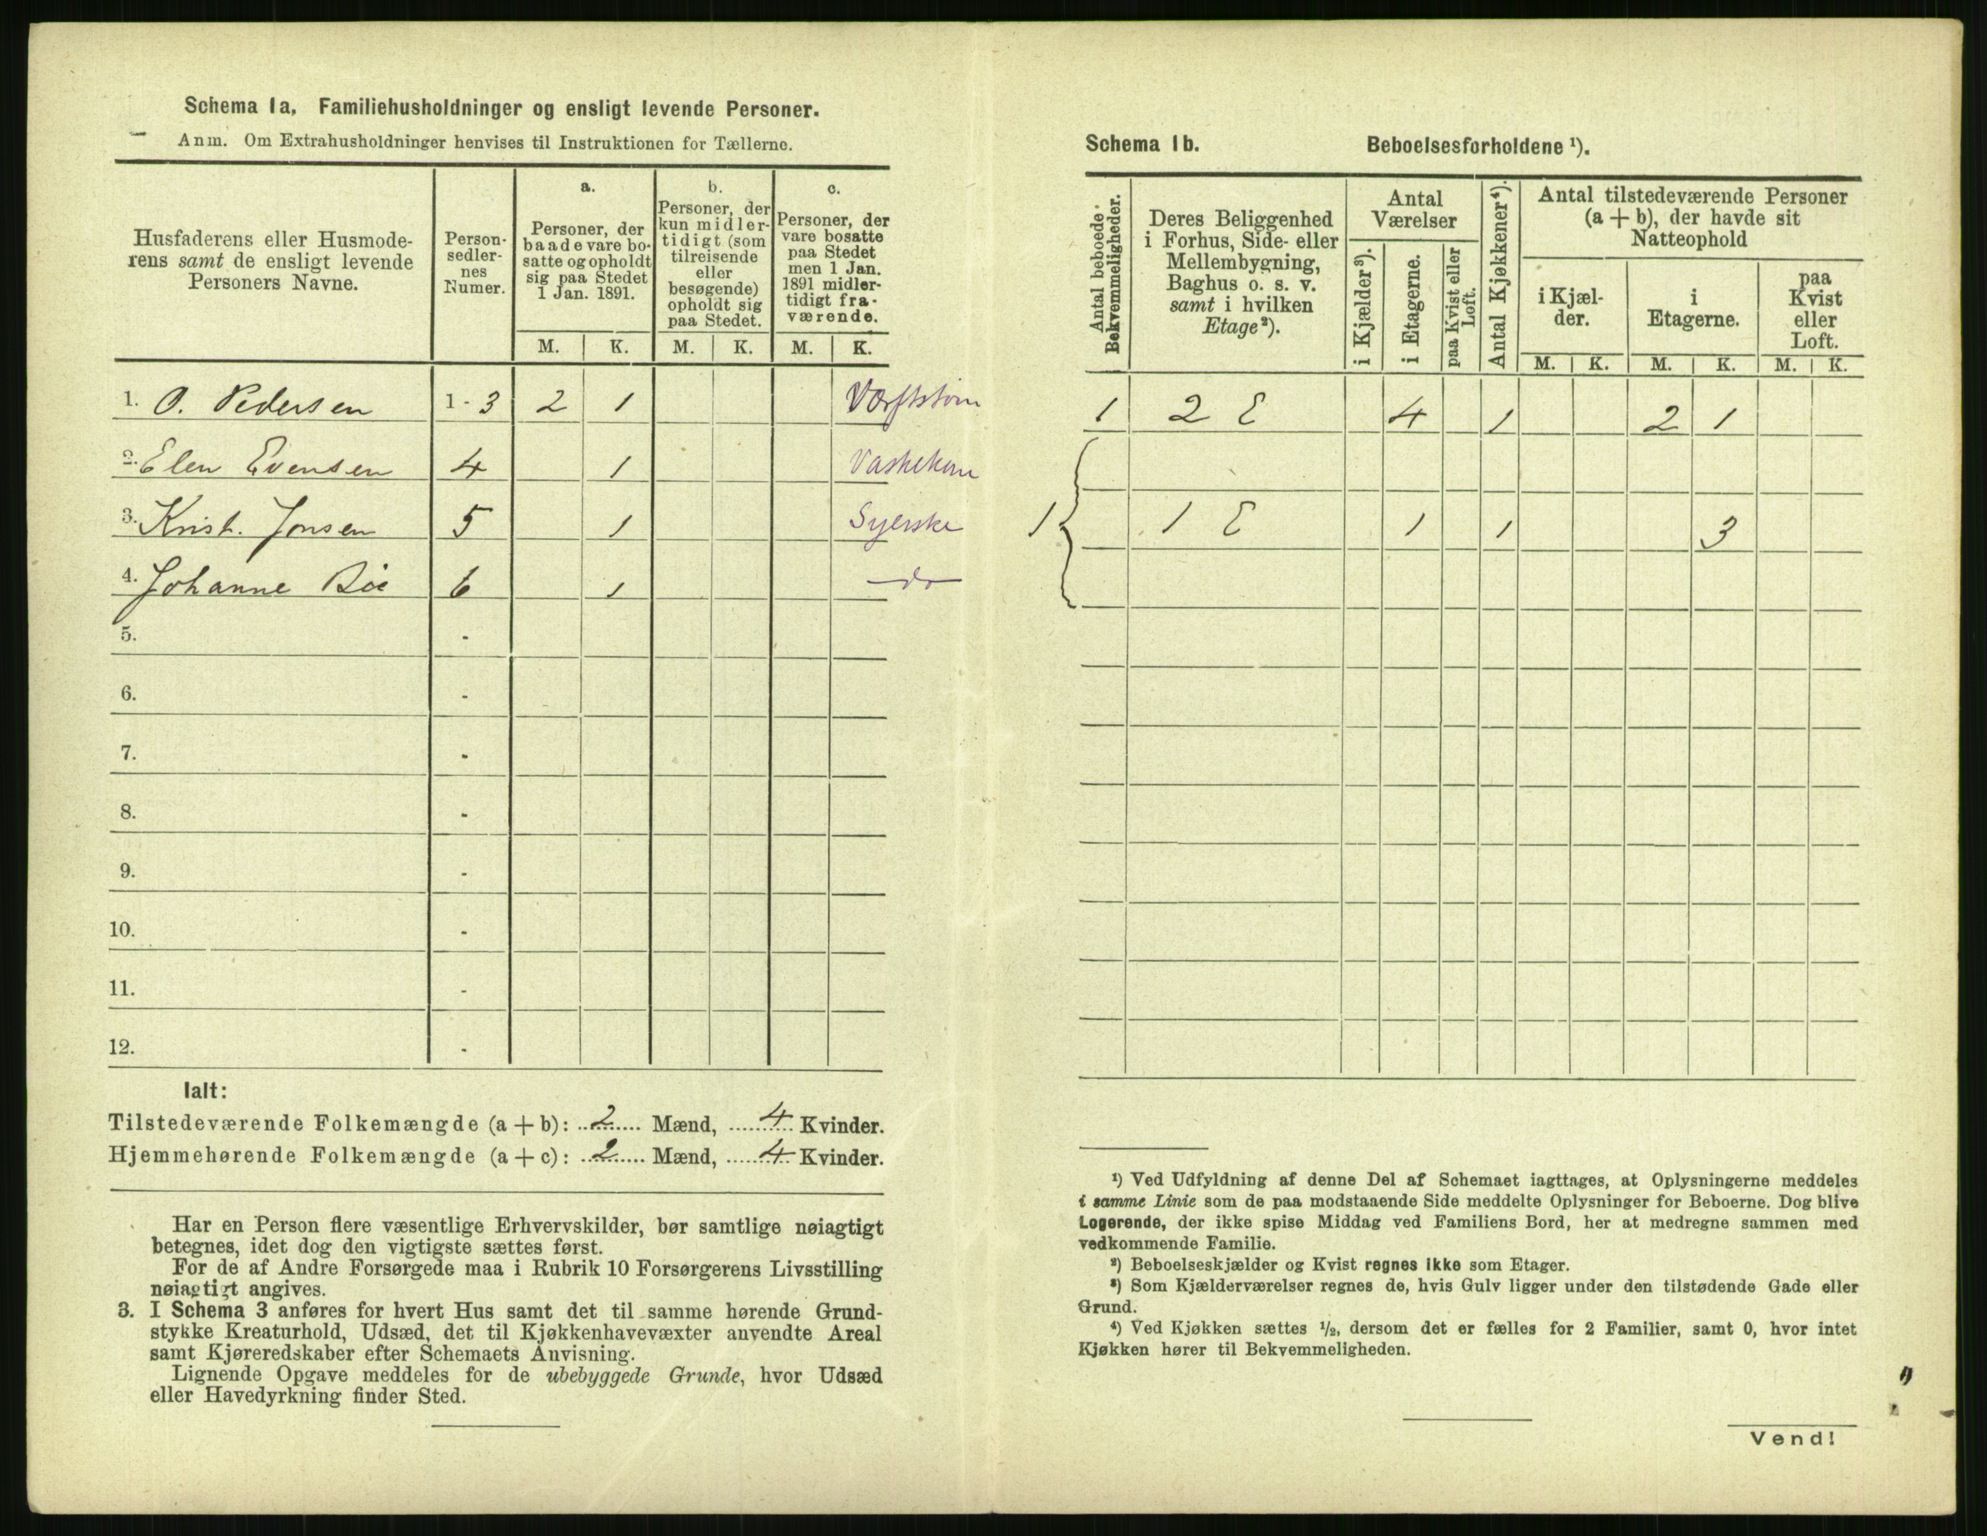 Schema 1a. Familiehusholdninger og ensligt levende Personer.
Anm. Om Extrahusholdninger henvises til Instruktionen for Tællerne.
Husfaderens eller Husmode-
rens samt de ensligt levende
Personers Navne.
Person-
sedler-
nes
Numer.
a.
Personer, der
baade vare bo-
satte og opholdt
sig paa Stedet
1 Jan. 1891.
b.
Personer, der
kun midler-
tidigt (som
tilreisende
eller
besøgende)
opholdt sig
paa Stedet.
c.
Personer, der
vare bosatte
paa Stedet
men 1 Jan.
1891 midler-
tidigt fra-
værende.
M. K. M. K. M. K.
1. O. Pedersen 1 - 3 2 1 Værftstøm
2. Elen Evensen 4 1 Vaskekone
3. Krist. Jonsen 5 1 Syerske
4. Johanne Bøe 6 1 do
5. -
6. -
7. -
8. -
9. -
10. -
11. -
12. -
Ialt:
Tilstedeværende Folkemængde (a + b): 2 Mænd, 4 Kvinder.
Hjemmehørende Folkemængde (a + c): 2 Mænd, 4 Kvinder.
Har en Person flere væsentlige Erhvervskilder, bør samtlige nøiagtigt
betegnes, idet dog den vigtigste sættes først.
For de af Andre Forsørgede maa i Rubrik 10 Forsørgerens Livsstilling
nøiagtigt angives.
3. I Schema 3 anføres for hvert Hus samt det til samme hørende Grund-
stykke Kreaturhold, Udsæd, det til Kjøkkenhavevæxter anvendte Areal
samt Kjøreredskaber efter Schemaets Anvisning.
Lignende Opgave meddeles for de ubebyggede Grunde, hvor Udsæd
eller Havedyrkning finder Sted.
Schema 1b. Beboelsesforholdene ¹).
Antal beboede
Bekvemmeligheder.
Deres Beliggenhed
i Forhus, Side- eller
Mellembygning,
Baghus o. s. v.
samt i hvilken
Etage²).
Antal
Værelser
i Kjælder³).
i Etagerne.
paa Kvist eller
Loft.
Antal Kjøkkener⁴).
Antal tilstedeværende Personer
(a + b), der havde sit
Natteophold
i Kjæl-
der.
i
Etagerne.
paa
Kvist
eller
Loft.
M. K. M. K. M. K.
1 2 E 4 1 2 1
1 1 E 1 1 3
¹) Ved Udfyldning af denne Del af Schemaet iagttages, at Oplysningerne meddeles
i samme Linie som de paa modstaaende Side meddelte Oplysninger for Beboerne. Dog blive
Logerende, der ikke spise Middag ved Familiens Bord, her at medregne sammen med
vedkommende Familie.
²) Beboelseskjælder og Kvist regnes ikke som Etager.
³) Som Kjælderværelser regnes de, hvis Gulv ligger under den tilstødende Gade eller
Grund.
⁴) Ved Kjøkken sættes ½, dersom det er fælles for 2 Familier, samt 0, hvor intet
Kjøkken hører til Bekvemmeligheden.
Vend!